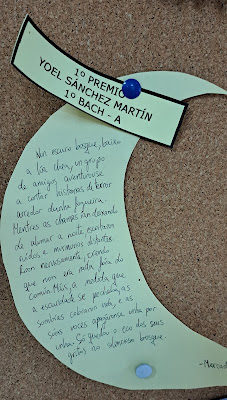 1º PREMIO
YOEL SÁNCHEZ MARTÍN
1º BACH - A
Nun escuro bosque, baixo
a lúa chea, un grupo
de amigos aventúrase
a contar historias de terror
arredor dunha fogueira.
Mentres as chamas van deixando
de alumar a noite escoitan
ruídos e murmurios distantes.
Riron nerviosamente, crendo
que non era nada fóra do
común. Máis, a medida que
a escuridade se pechaba, as
sombras cobraron vida, e as
súas voces apagáronse unha por
unha. Só quedou o eco dos seus
gritos no silencioso bosque.